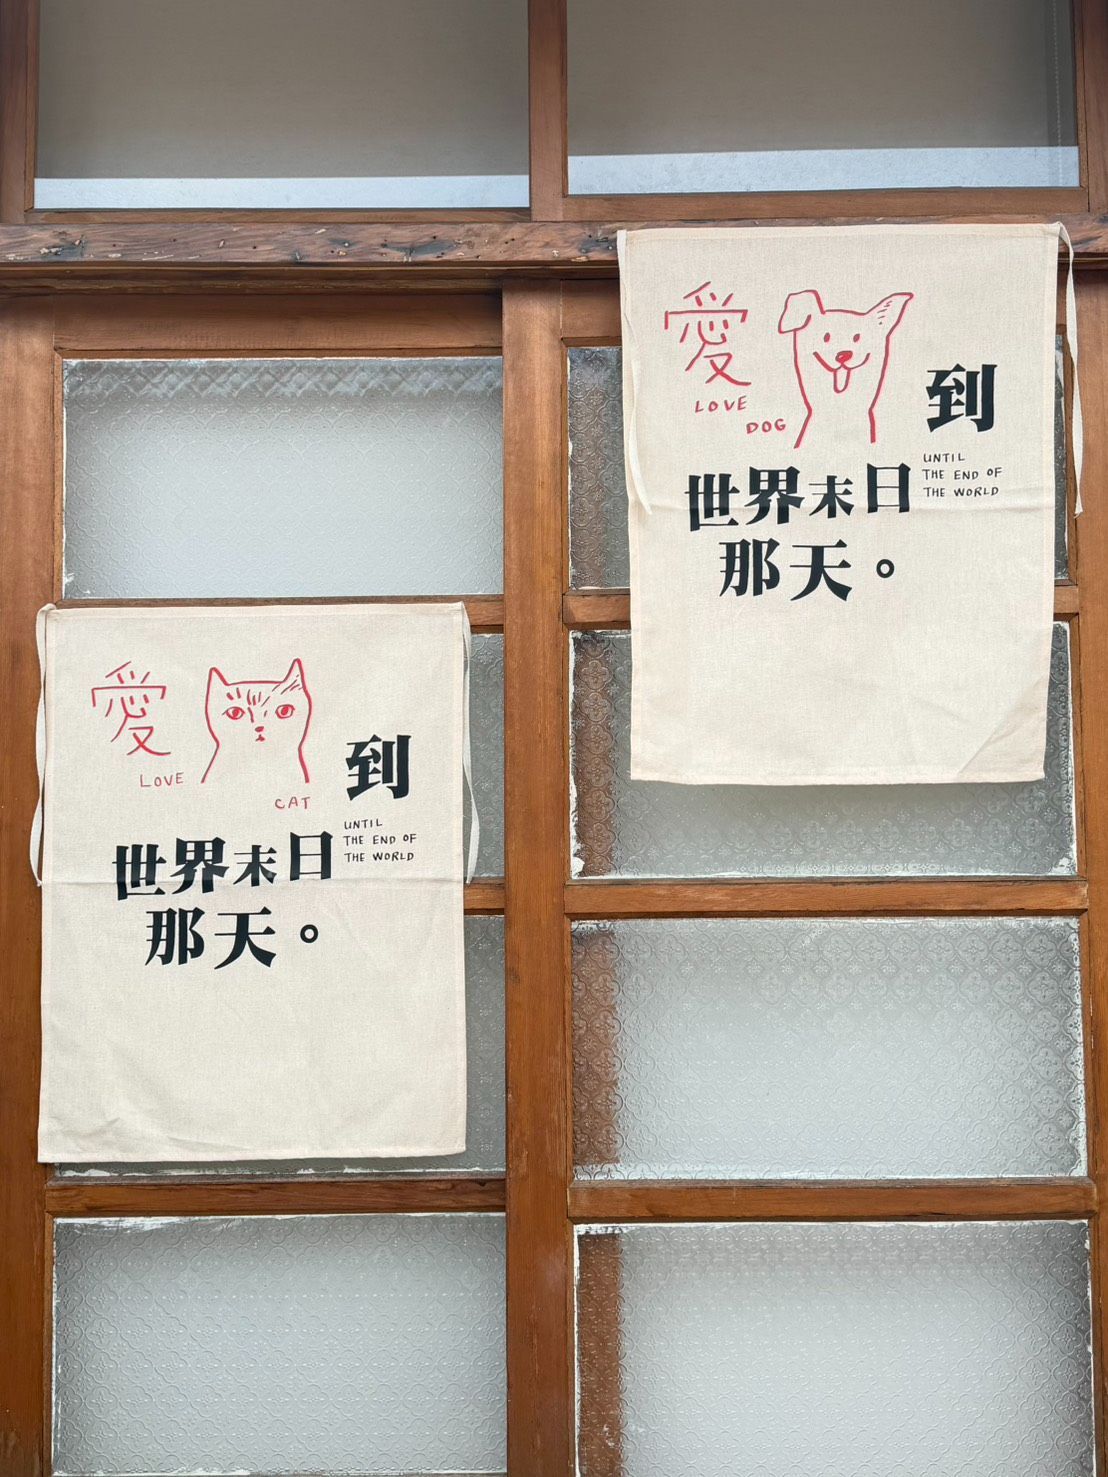 愛 到
LOVE
CAT
UNTIL
THE END OF
THE WORLD
世界末日
那天。
愛 到
LOVE
DOG
UNTIL
THE END OF
THE WORLD
世界末日
那天。